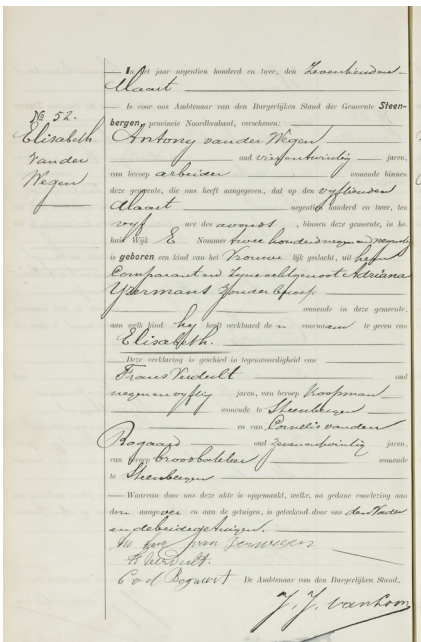 In het jaar negentien honderd en twee, den Zeventienden
Maart
Is voor ons Ambtenaar van den Burgerlijken Stand der Gemeente Steen-
bergen, provincie Noordbrabant, verschenen:
No 52.
Elisabeth
van der
Wegen
Antony van der Wegen
oud vierentwintig jaren,
van beroep arbeider wonende binnen
deze gemeente, die ons heeft aangegeven, dat op den vijftienden
Maart negentien honderd en twee, ten
vijf ure des avonds, binnen deze gemeente, in het
huis Wijk E Nommer twee honderd negen en negentig
is geboren een kind van het Vrouwelijk geslacht, uit hem
Comparant en zijne echtgenoot Adriana
IJzermans zonder beroep
wonende in deze gemeente,
aan welk kind hij heeft verklaard de n voornaam te geven van
Elisabeth.
Deze verklaring is geschied in tegenwoordigheid van
Frans Verdult oud
negen en vijftig jaren, van beroep Koopman
wonende te Steenbergen
en van Cornelis van den
Bogaard oud zeven en twintig jaren,
van beroep broodbakker wonende
te Steenbergen
Waarvan door ons deze akte is opgemaakt, welke, na gedane voorlezing aan
den aangever en aan de getuigen, is geteekend door ons den Vader
en de beide getuigen.
F Verdult.
C v d Bogaart
De Ambtenaar van den Burgerlijken Stand,
J. J. van Loon